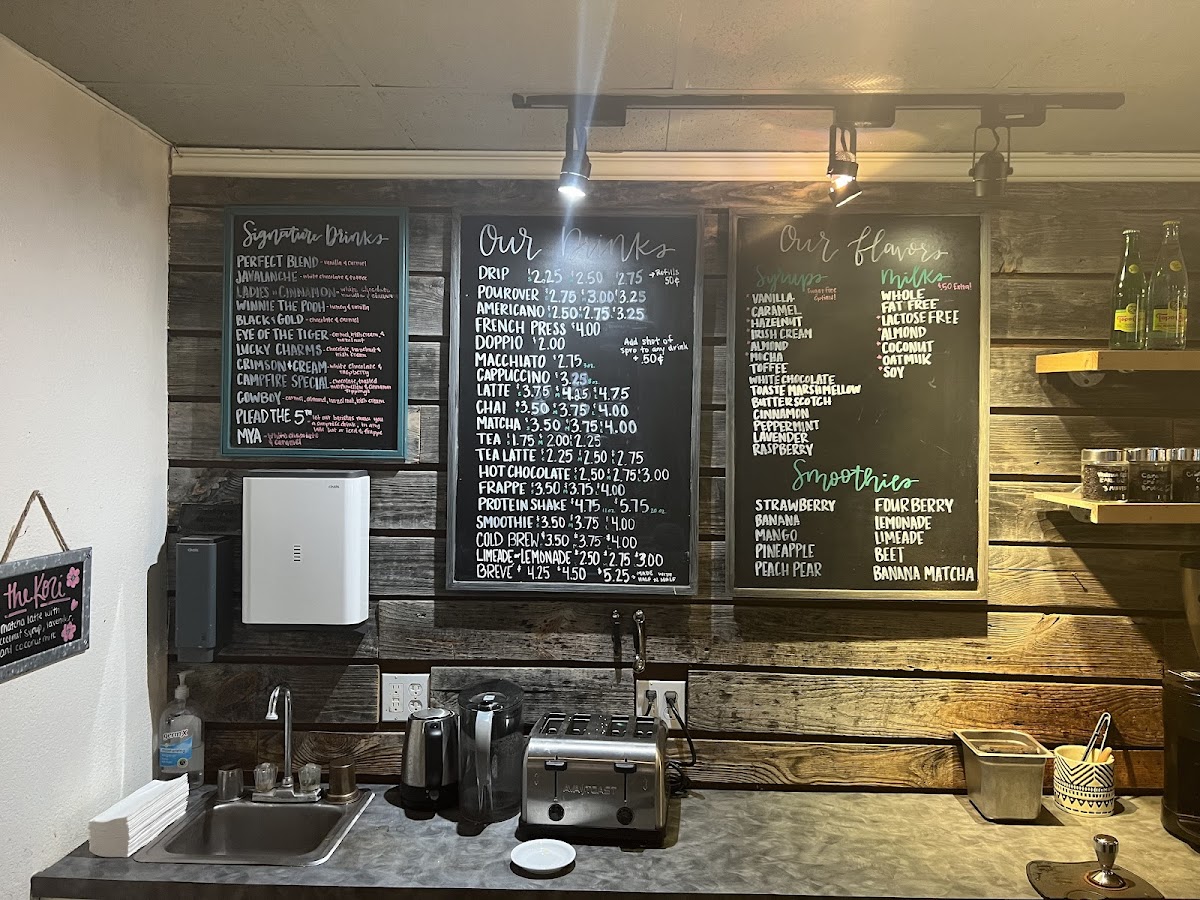 Signature Drinks
PERFECT BLEND - vanilla & caramel
JAVALANCHE - white chocolate & toffee
LADIES N CINNAMON - white chocolate
WINNIE THE POOH - honey & vanilla
BLACK & GOLD - chocolate & caramel
EYE OF THE TIGER - caramel, irish cream, &
hazelnut
LUCKY CHARMS - chocolate, hazelnut &
irish cream
CRIMSON & CREAM - white chocolate &
raspberry
CAMPFIRE SPECIAL - chocolate, toasted
marshmallow & cinnamon
COWBOY - caramel, almond, hazelnut, irish cream
PLEAD THE 5TH let our baristas make you
a surprise drink, in any
latte hot or iced & frappe
MYA - white chocolate
& caramel
Our Drinks
DRIP $2.25 $2.50 $2.75 → Refills
50¢
POUROVER $2.75 $3.00 $3.25
AMERICANO $2.50 $2.75 $3.25
FRENCH PRESS $4.00
DOPPIO $2.00
Add shot of
spro to any drink
+ .50¢
MACCHIATO $2.75
CAPPUCCINO $3.25
LATTE $3.75 $4.25 $4.75
CHAI $3.50 $3.75 $4.00
MATCHA $3.50 $3.75 $4.00
TEA $1.75 $2.00 $2.25
TEA LATTE $2.25 $2.50 $2.75
HOT CHOCOLATE $2.50 $2.75 $3.00
FRAPPE $3.50 $3.75 $4.00
PROTEIN SHAKE $4.75 $5.75
SMOOTHIE $3.50 $3.75 $4.00
COLD BREW $3.50 $3.75 $4.00
LIMEADE or LEMONADE $2.50 $2.75 $3.00
BREVE $4.25 $4.50 $5.25 * MADE WITH
HALF N HALF
Our flavors
Syrups
Sugar free
options!
VANILLA
CARAMEL
HAZELNUT
IRISH CREAM
ALMOND
MOCHA
TOFFEE
WHITE CHOCOLATE
TOASTE MARSHMELLOW
BUTTERSCOTCH
CINNAMON
PEPPERMINT
LAVENDER
RASPBERRY
Milks
$.50 Extra!
WHOLE
FAT FREE
LACTOSE FREE
ALMOND
COCONUT
OATMILK
SOY
Smoothies
STRAWBERRY
BANANA
MANGO
PINEAPPLE
PEACH PEAR
FOURBERRY
LEMONADE
LIMEADE
BEET
BANANA MATCHA
the Kori
matcha latte with
coconut syrup, lavender,
and coconut milk
AVATOAST